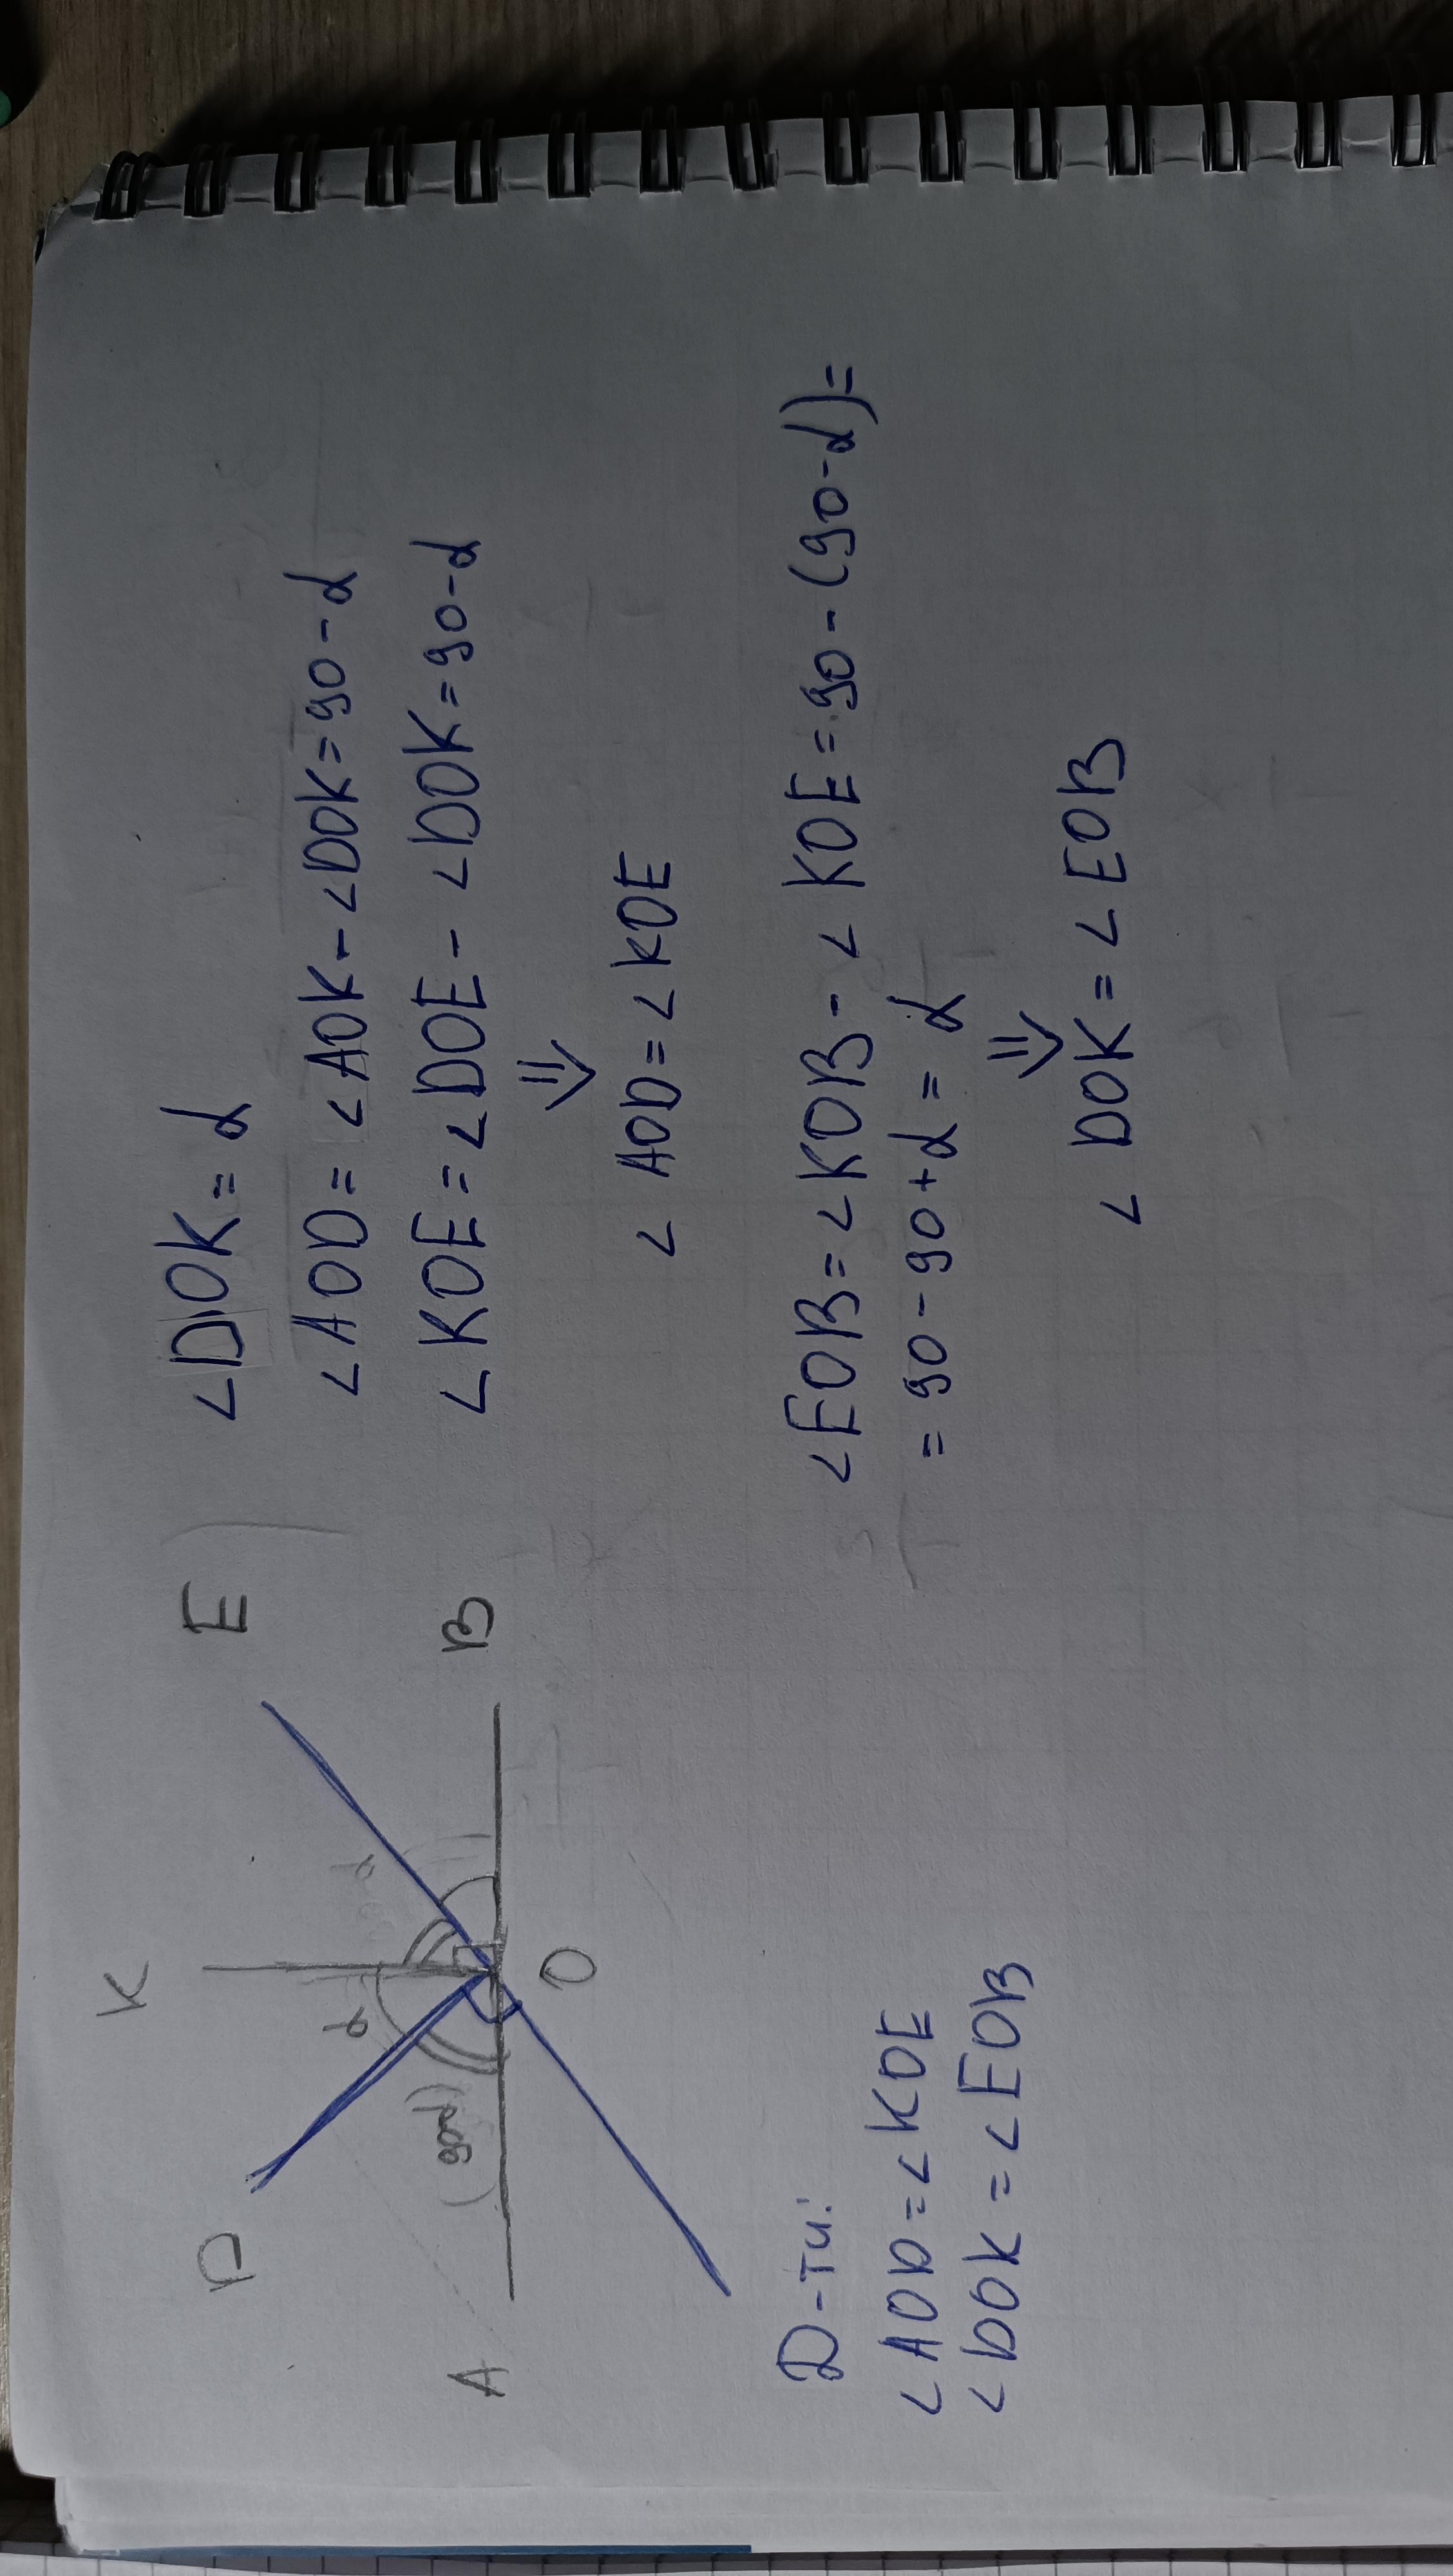 K
D
E
α
(90-α)
α
A
O
B
Д-ти:
∠AOD=∠KOE
∠DOK=∠EOB
∠DOK=α
∠AOD=∠AOK-∠DOK=90-α
∠KOE=∠DOE-∠DOK=90-α
⇓
∠AOD=∠KOE
∠EOB=∠KOB-∠KOE=90-(90-α)=
=90-90+α=α
⇓
∠DOK=∠EOB